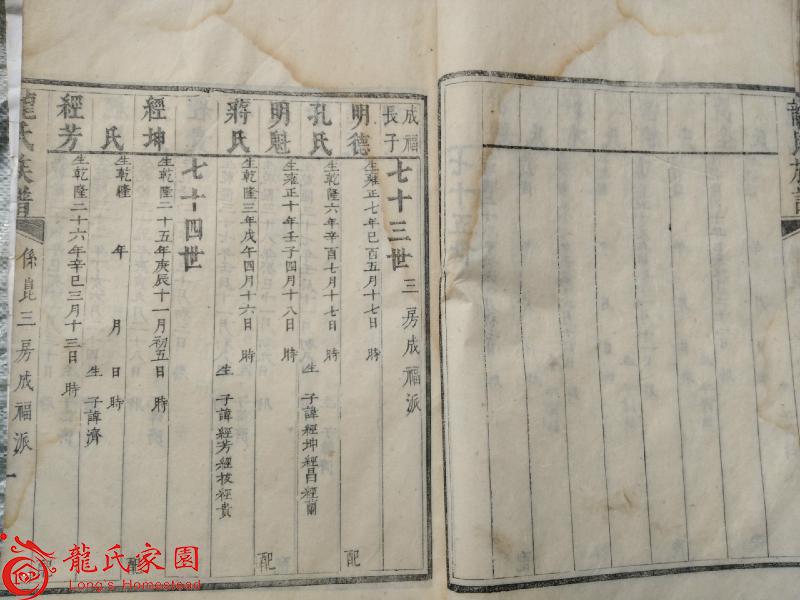 龍氏族譜
七十三世 三房成福派
成福長子 明德 生雍正七年己酉五月十七日 時 配
孔氏 生乾隆六年辛酉七月十七日 時 生 子諱經坤經昌經蘭
明魁 生雍正十年壬子四月十八日 時 配
蔣氏 生乾隆三年戊午四月十六日 時 生 子諱經芳經拔經貴
七十四世
經坤 生乾隆二十五年庚辰十一月初五日 時 配
氏 生乾隆 年 月 日 時 生 子諱濟
經芳 生乾隆二十六年辛巳三月十三日 時 配
龍氏族譜 係崑三房成福派 一
龍氏家園
Long's Homestead